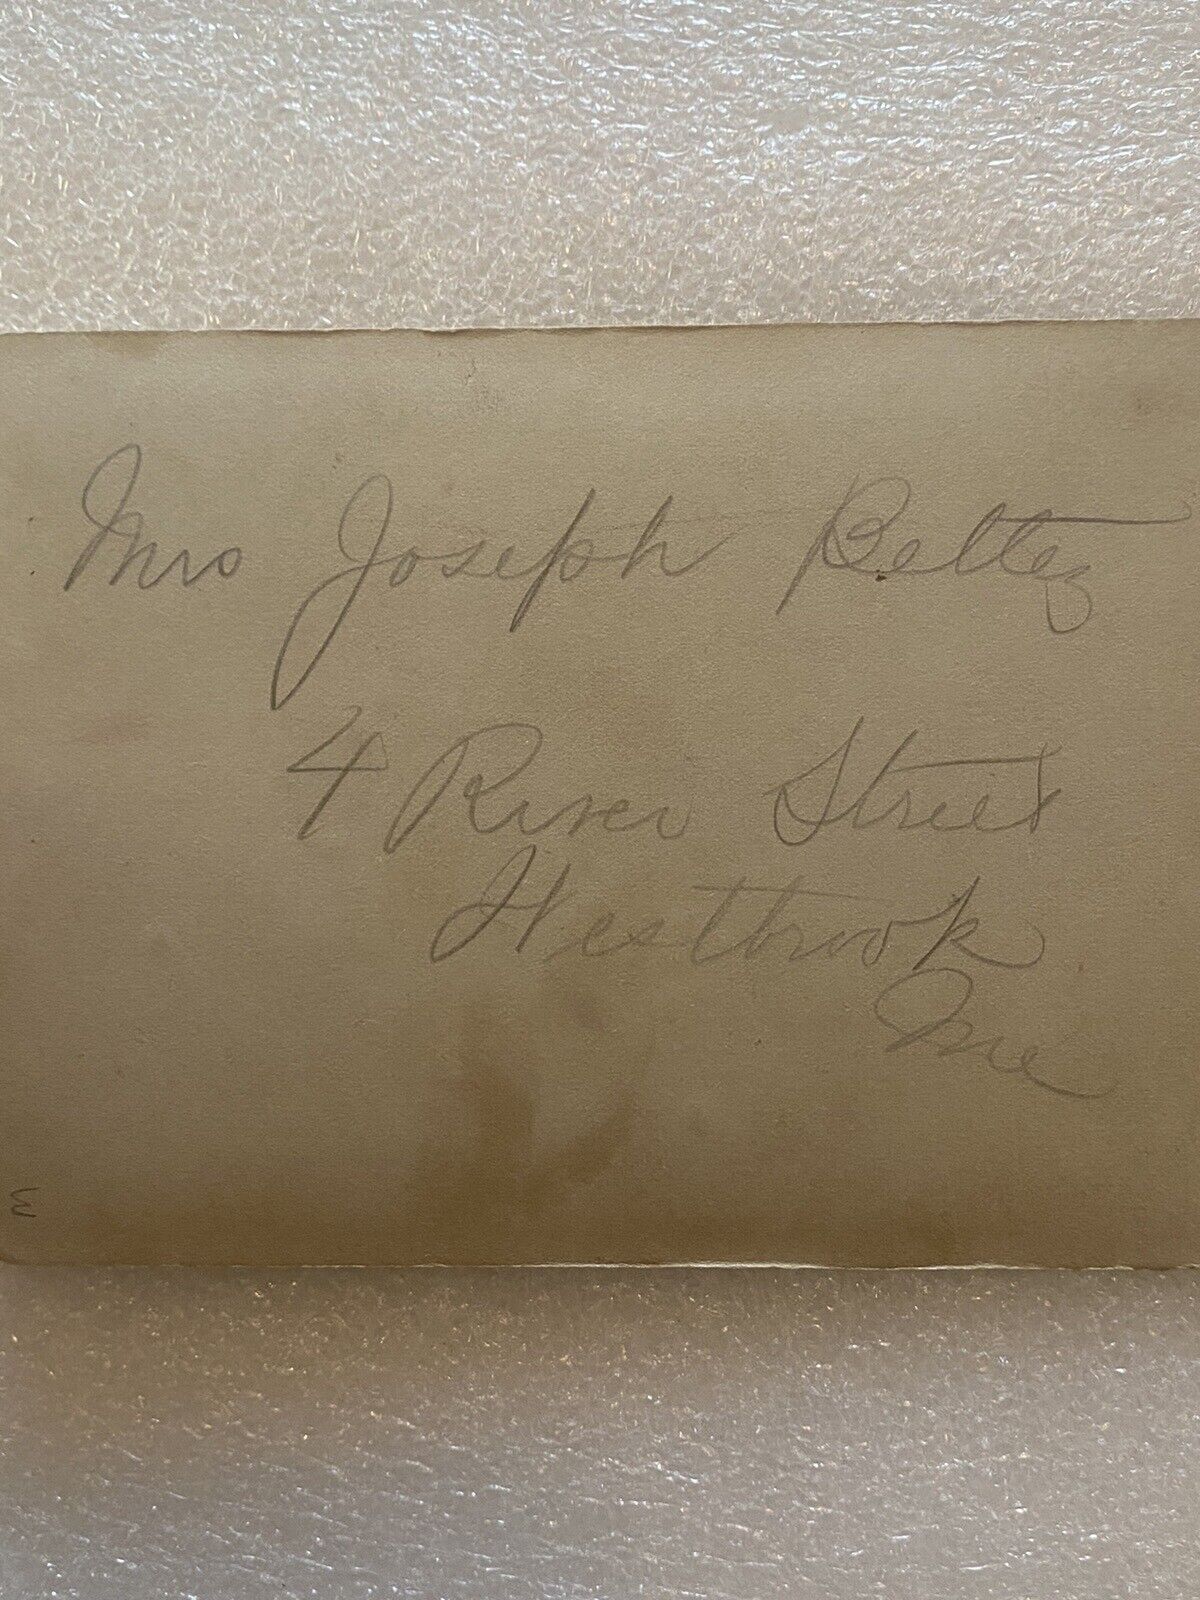 Mrs Joseph Bettez
4 River Street
Westbrook
Me